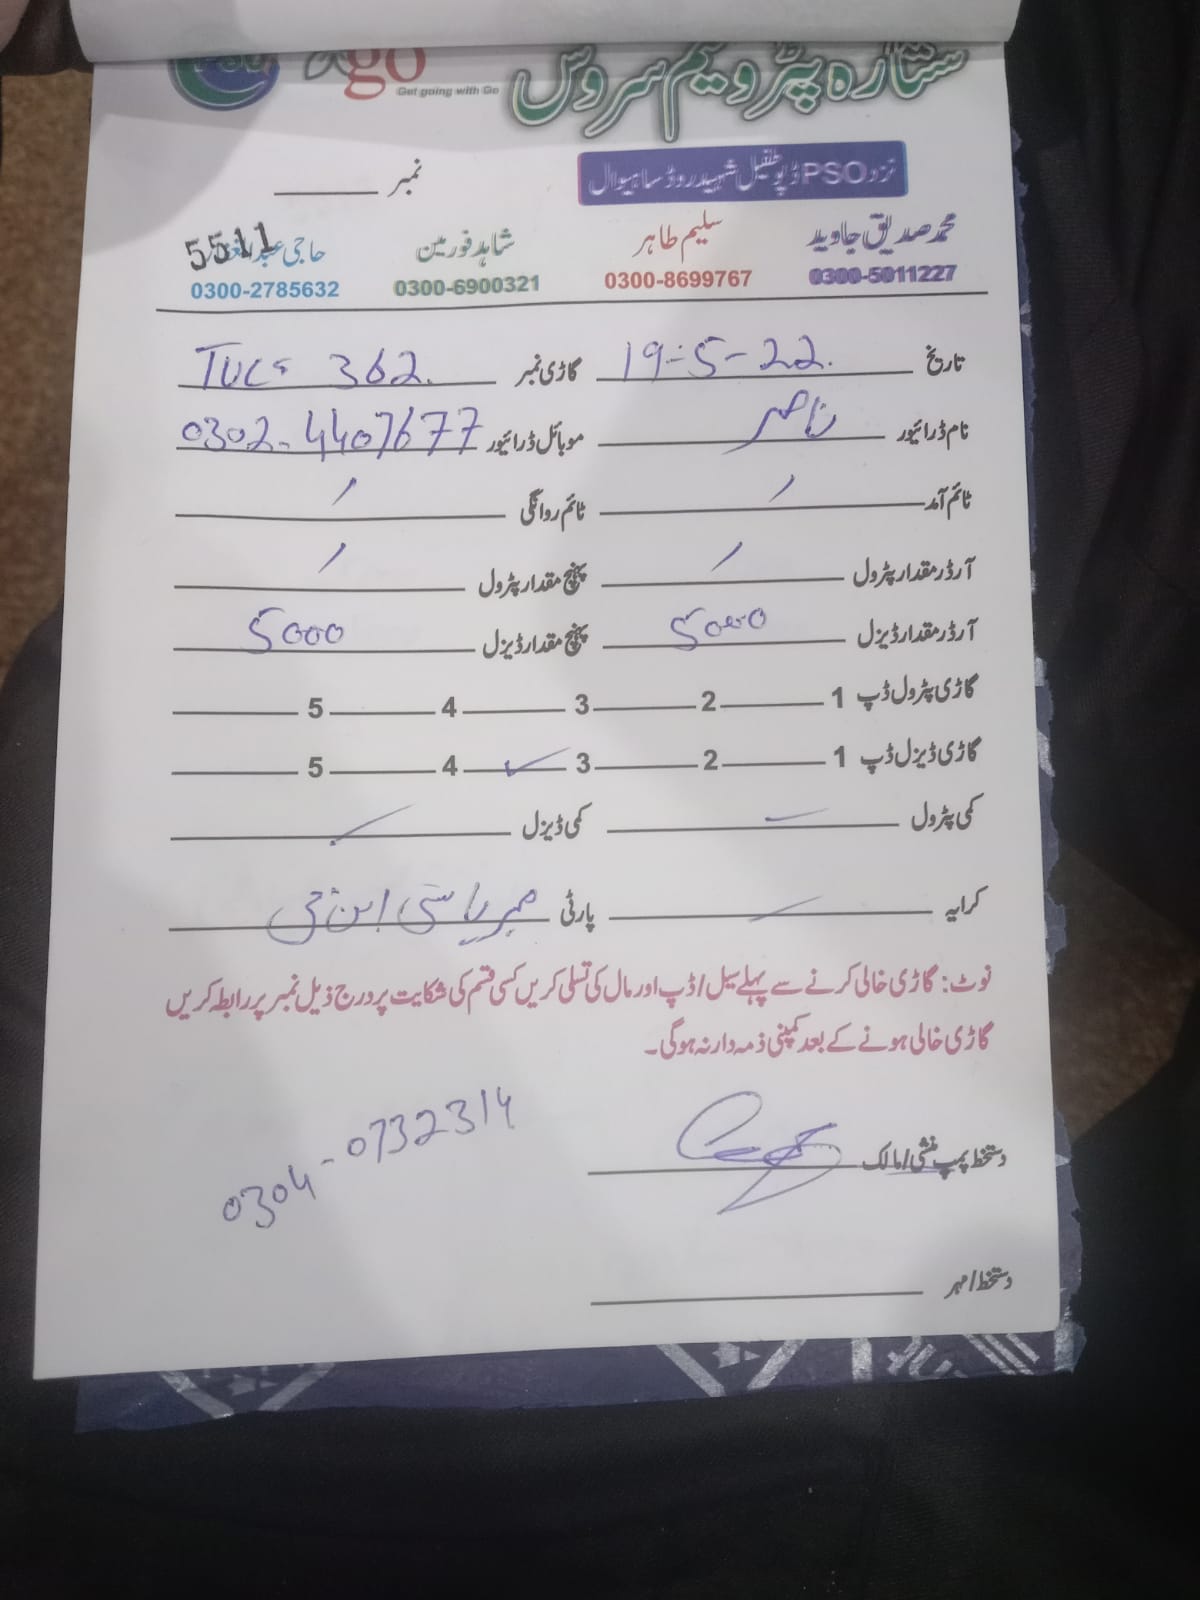 PSO go ستارہ پٹرولیم سروس
Get going with Go
نزد PSO ڈپو طفیل شہید روڈ ساہیوال
نمبر
5511
محمد صدیق جاوید سلیم طاہر شاہد فورمین حاجی
0300-5011227 0300-8699767 0300-6900321 0300-2785632
تاریخ 19-5-22 گاڑی نمبر 362
نام ڈرائیور ناصر موبائل ڈرائیور 0302-4407677
ٹائم آمد ٹائم روانگی
آرڈر مقدار پٹرول پہنچ مقدار پٹرول
آرڈر مقدار ڈیزل 5000 پہنچ مقدار ڈیزل 5000
گاڑی پٹرول ڈپ 1 2 3 4 5
گاڑی ڈیزل ڈپ 1 2 3 4 ✓ 5
کمی پٹرول کمی ڈیزل
کرایہ پارٹی
نوٹ: گاڑی خالی کرنے سے پہلے سیل/ڈپ اور مال کی تسلی کریں کسی قسم کی شکایت پر درج ذیل نمبر پر رابطہ کریں
گاڑی خالی ہونے کے بعد کمپنی ذمہ دار نہ ہوگی۔
0304-0732314
دستخط پمپ منشی/مالک
دستخط/مہر